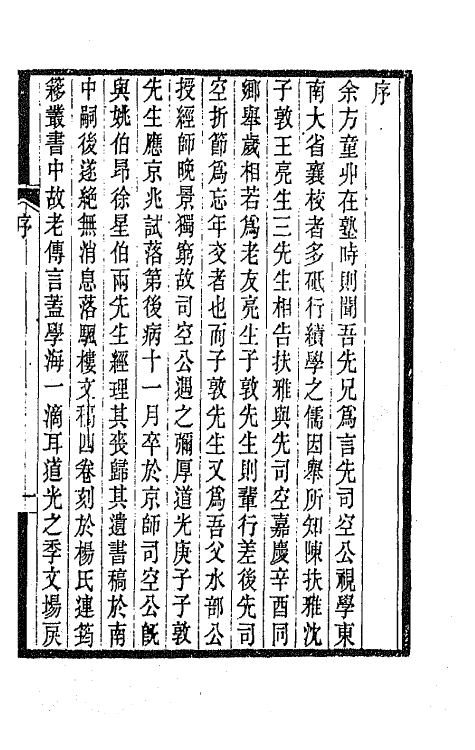 序
余方童丱在塾時則聞吾先兄爲言先司空公視學東
南大省襄校者多砥行績學之儒因舉所知陳扶雅沈
子敦王亮生三先生相告扶雅與先司空嘉慶辛酉同
鄉舉歲相若爲老友亮生子敦先生則輩行差後先司
空折節爲忘年交者也而子敦先生又爲吾父水部公
授經師晚景獨窮故司空公遇之彌厚道光庚子子敦
先生應京兆試落第後病十一月卒於京師司空公旣
與姚伯昂徐星伯兩先生經理其喪歸其遺書稿於南
中嗣後遂絶無消息落颿樓文稿四卷刻於楊氏連筠
簃叢書中故老傳言蓋學海一滴耳道光之季文場戻
序
一